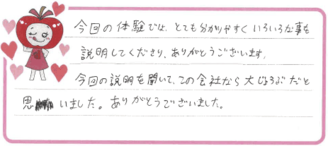 今回の体験では、とても分かりやすくいろいろな事を
説明してくださり、ありがとうございます。
今回の説明を聞いて、この会社なら大じょうぶだと
思いました。ありがとうございました。